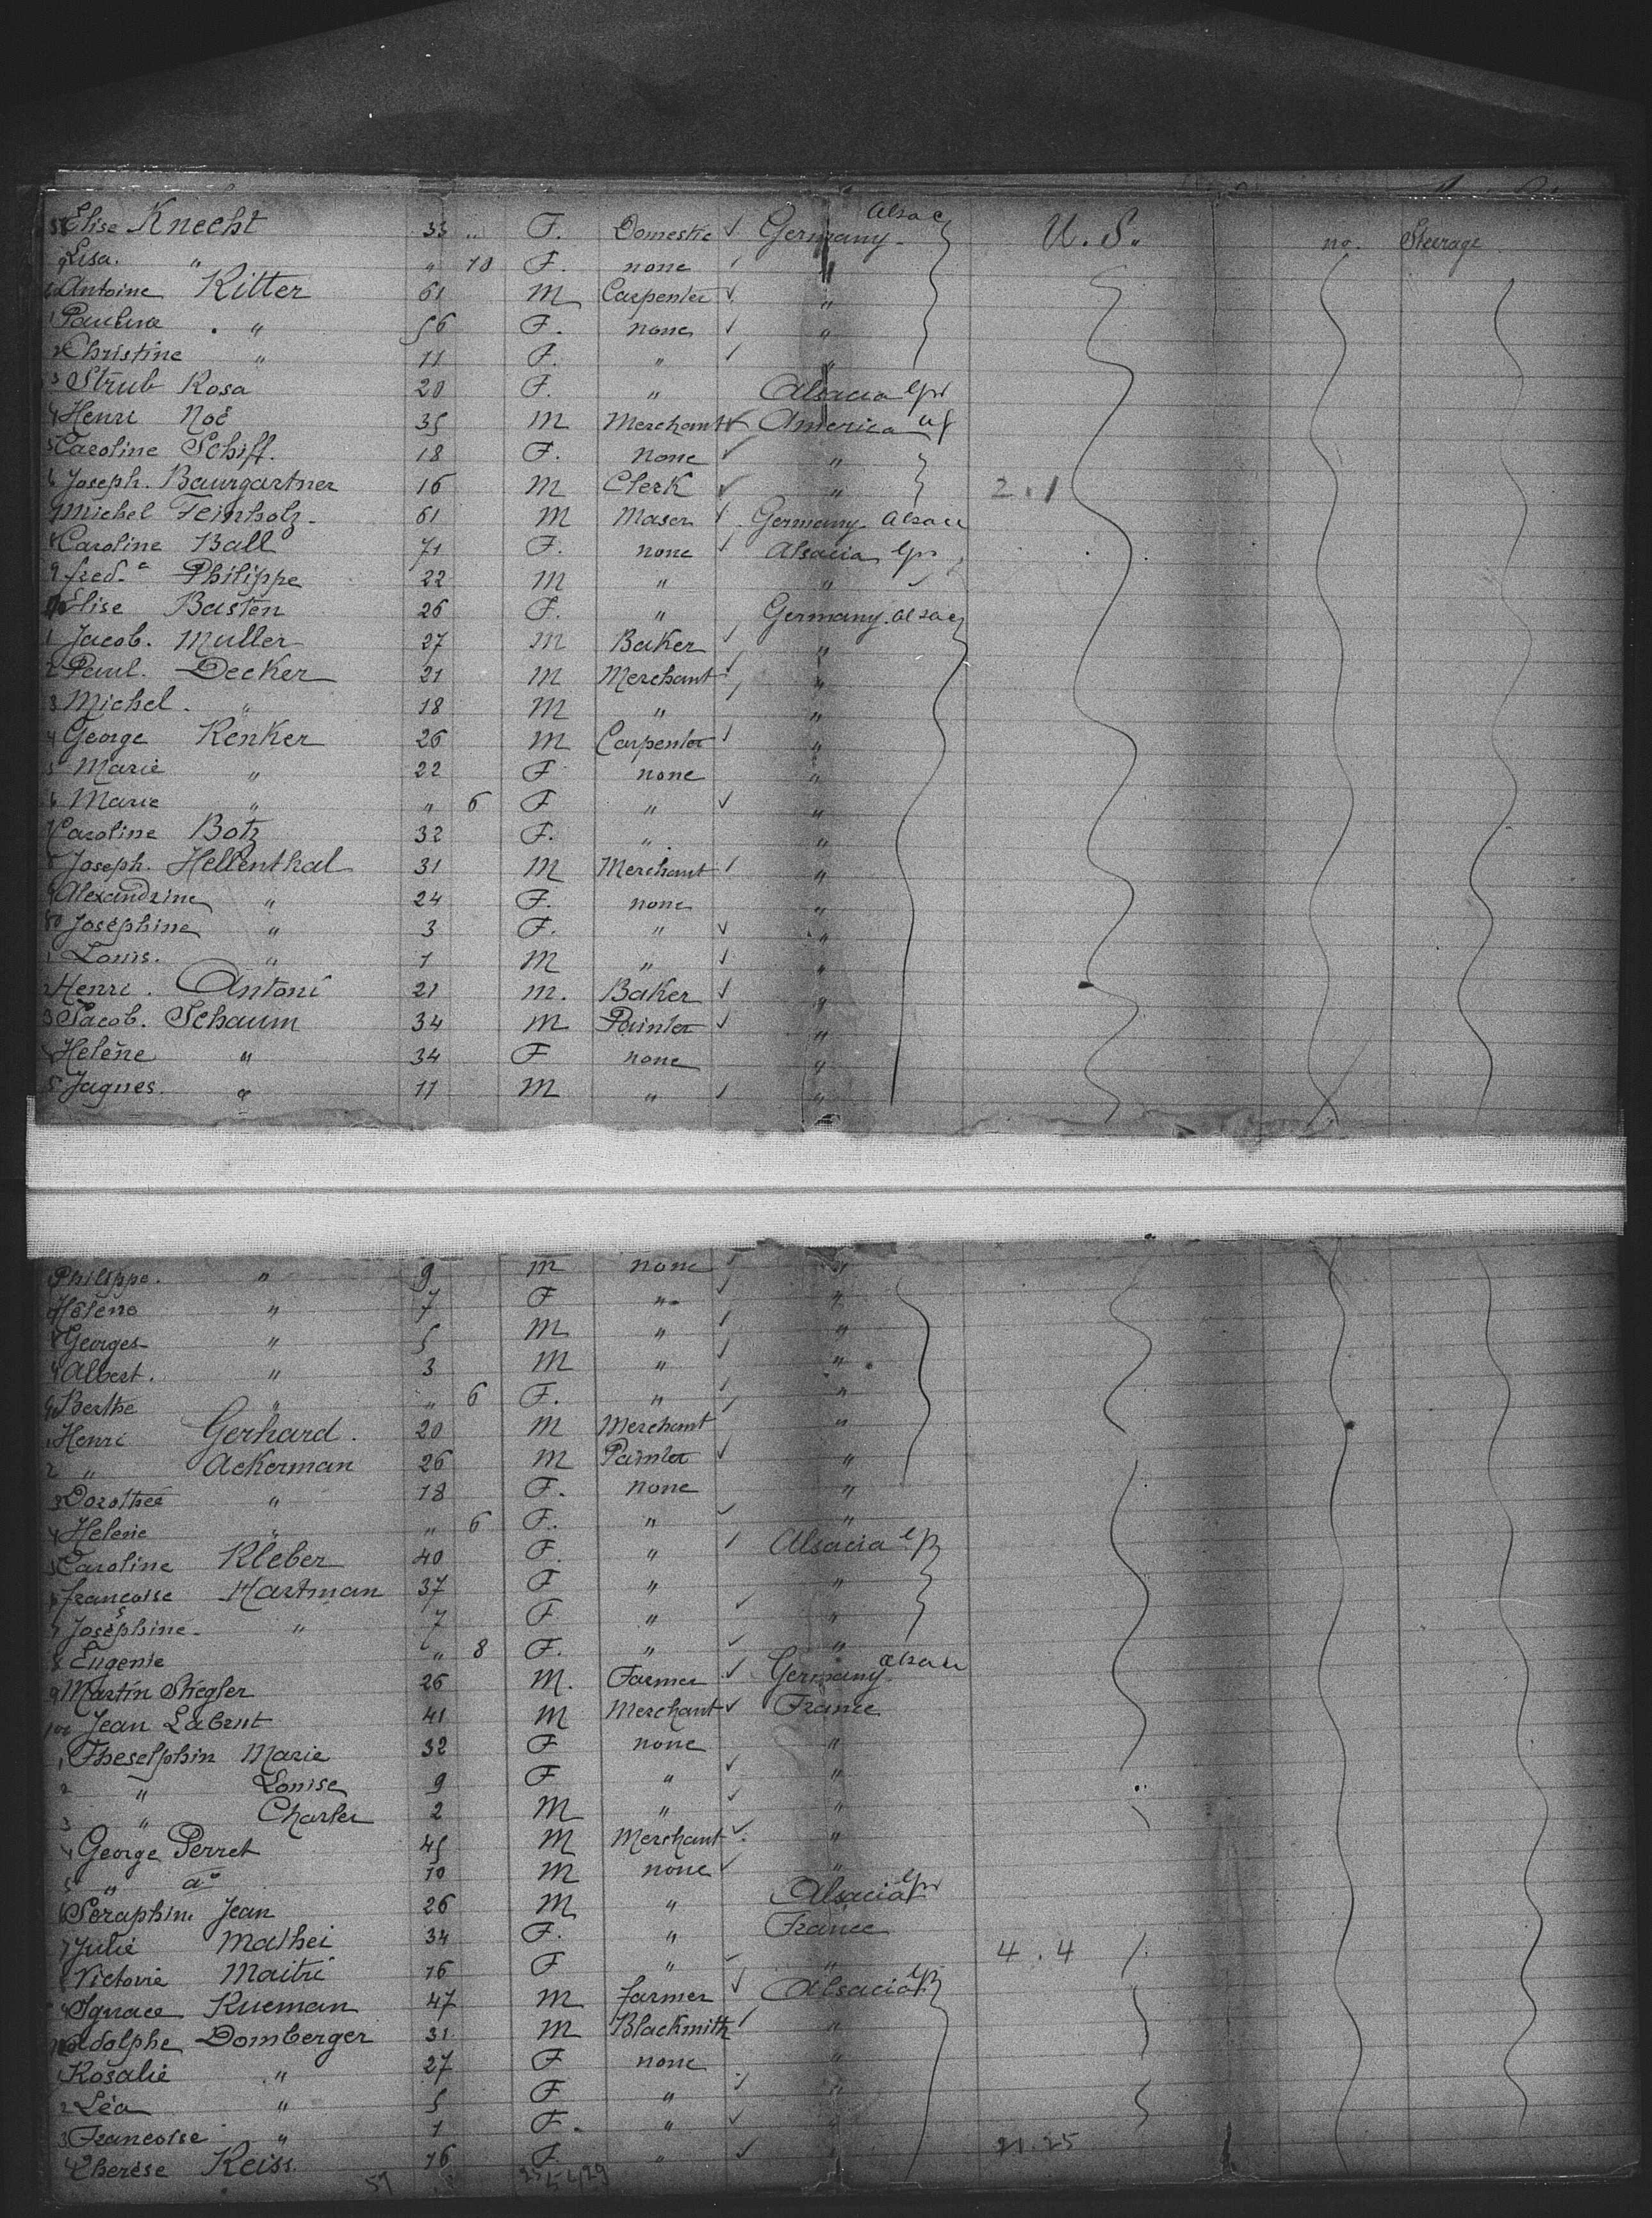 58 Elise Knecht 33 " F. Domestic ✓ Germany Alsac U. S. no. Steerage
9 Lisa. " " 10 F. none ✓ "
60 Antoine Ritter 61 M Carpenter ✓ "
1 Paulina " 56 F. none ✓ "
2 Christine " 11 F. " ✓ "
3 Strub Rosa 20 F. " Alsacia
4 Henri Noé 35 M Merchant ✓ America
5 Caroline Schiff. 18 F. none ✓ "
6 Joseph. Baurgartner 16 M Clerk ✓ " 2.1
7 Michel Feinholz 61 M Maser ✓ Germany Alsace
8 Caroline Ball 71 F. none ✓ Alsacia
9 fred. Philippe 22 M " "
70 Elise Basten 26 F. " Germany. Alsac
1 Jacob. Muller 27 M Baker ✓ "
2 Paul. Decker 21 M Merchant ✓ "
3 Michel. " 18 M " ✓ "
4 George Renker 26 M Carpenter ✓ "
5 Marie " 22 F none "
6 Marie " " 6 F " ✓ "
7 Caroline Botz 32 F. " "
8 Joseph. Hellenthal 31 M Merchant ✓ "
9 Alexandrine " 24 F. none "
80 Joséphine " 3 F. " ✓ "
1 Louis. " 1 M " ✓ "
2 Henri. Antoni 21 M. Baker ✓ "
3 Jacob. Schaum 34 M Painter ✓ "
4 Helène " 34 F none "
5 Jagnes. " 11 M " ✓ "
6 Philippe. " 9 M none ✓ "
7 Hélène " 7 F " ✓ "
8 Georges " 5 M " ✓ "
9 Albert. " 3 M " ✓ "
90 Berthe " " 6 F. " ✓ "
1 Henri Gerhard. 20 M Merchant ✓ "
2 " Ackerman 26 M Painter ✓ "
3 Dorothée " 18 F. none "
4 Helene " " 6 F. " ✓ "
5 Caroline Kleber 40 F. " ✓ Alsacia
6 francoise Hartman 37 F " "
7 Joséphine " 7 F " ✓ "
8 Eugenie " 8 F. " ✓ "
9 Martin Stiegler 26 M. Farmer ✓ Germany Alsace
100 Jean Labrut 41 M Merchant ✓ France
1 Theselphin Marie 32 F none "
2 " Louise 9 F " ✓ "
3 " Charles 2 M " ✓ "
4 George Perret 45 M Merchant ✓ "
5 " 10 M none ✓ "
6 Seraphin Jean 26 M " Alsacia
7 Julie Mathei 34 F. " France
8 Victorie Maitri 16 F " ✓ " 4.4
9 Ignace Kueman 47 M farmer ✓ Alsacia
110 Adolphe Domberger 31 M Blacksmith ✓ "
1 Rosalie " 27 F none "
2 Léa " 5 F " ✓ "
3 Francoise " 1 F. " ✓ "
4 Therèse Reiss. 16 F. " ✓ " 21.25
57 29